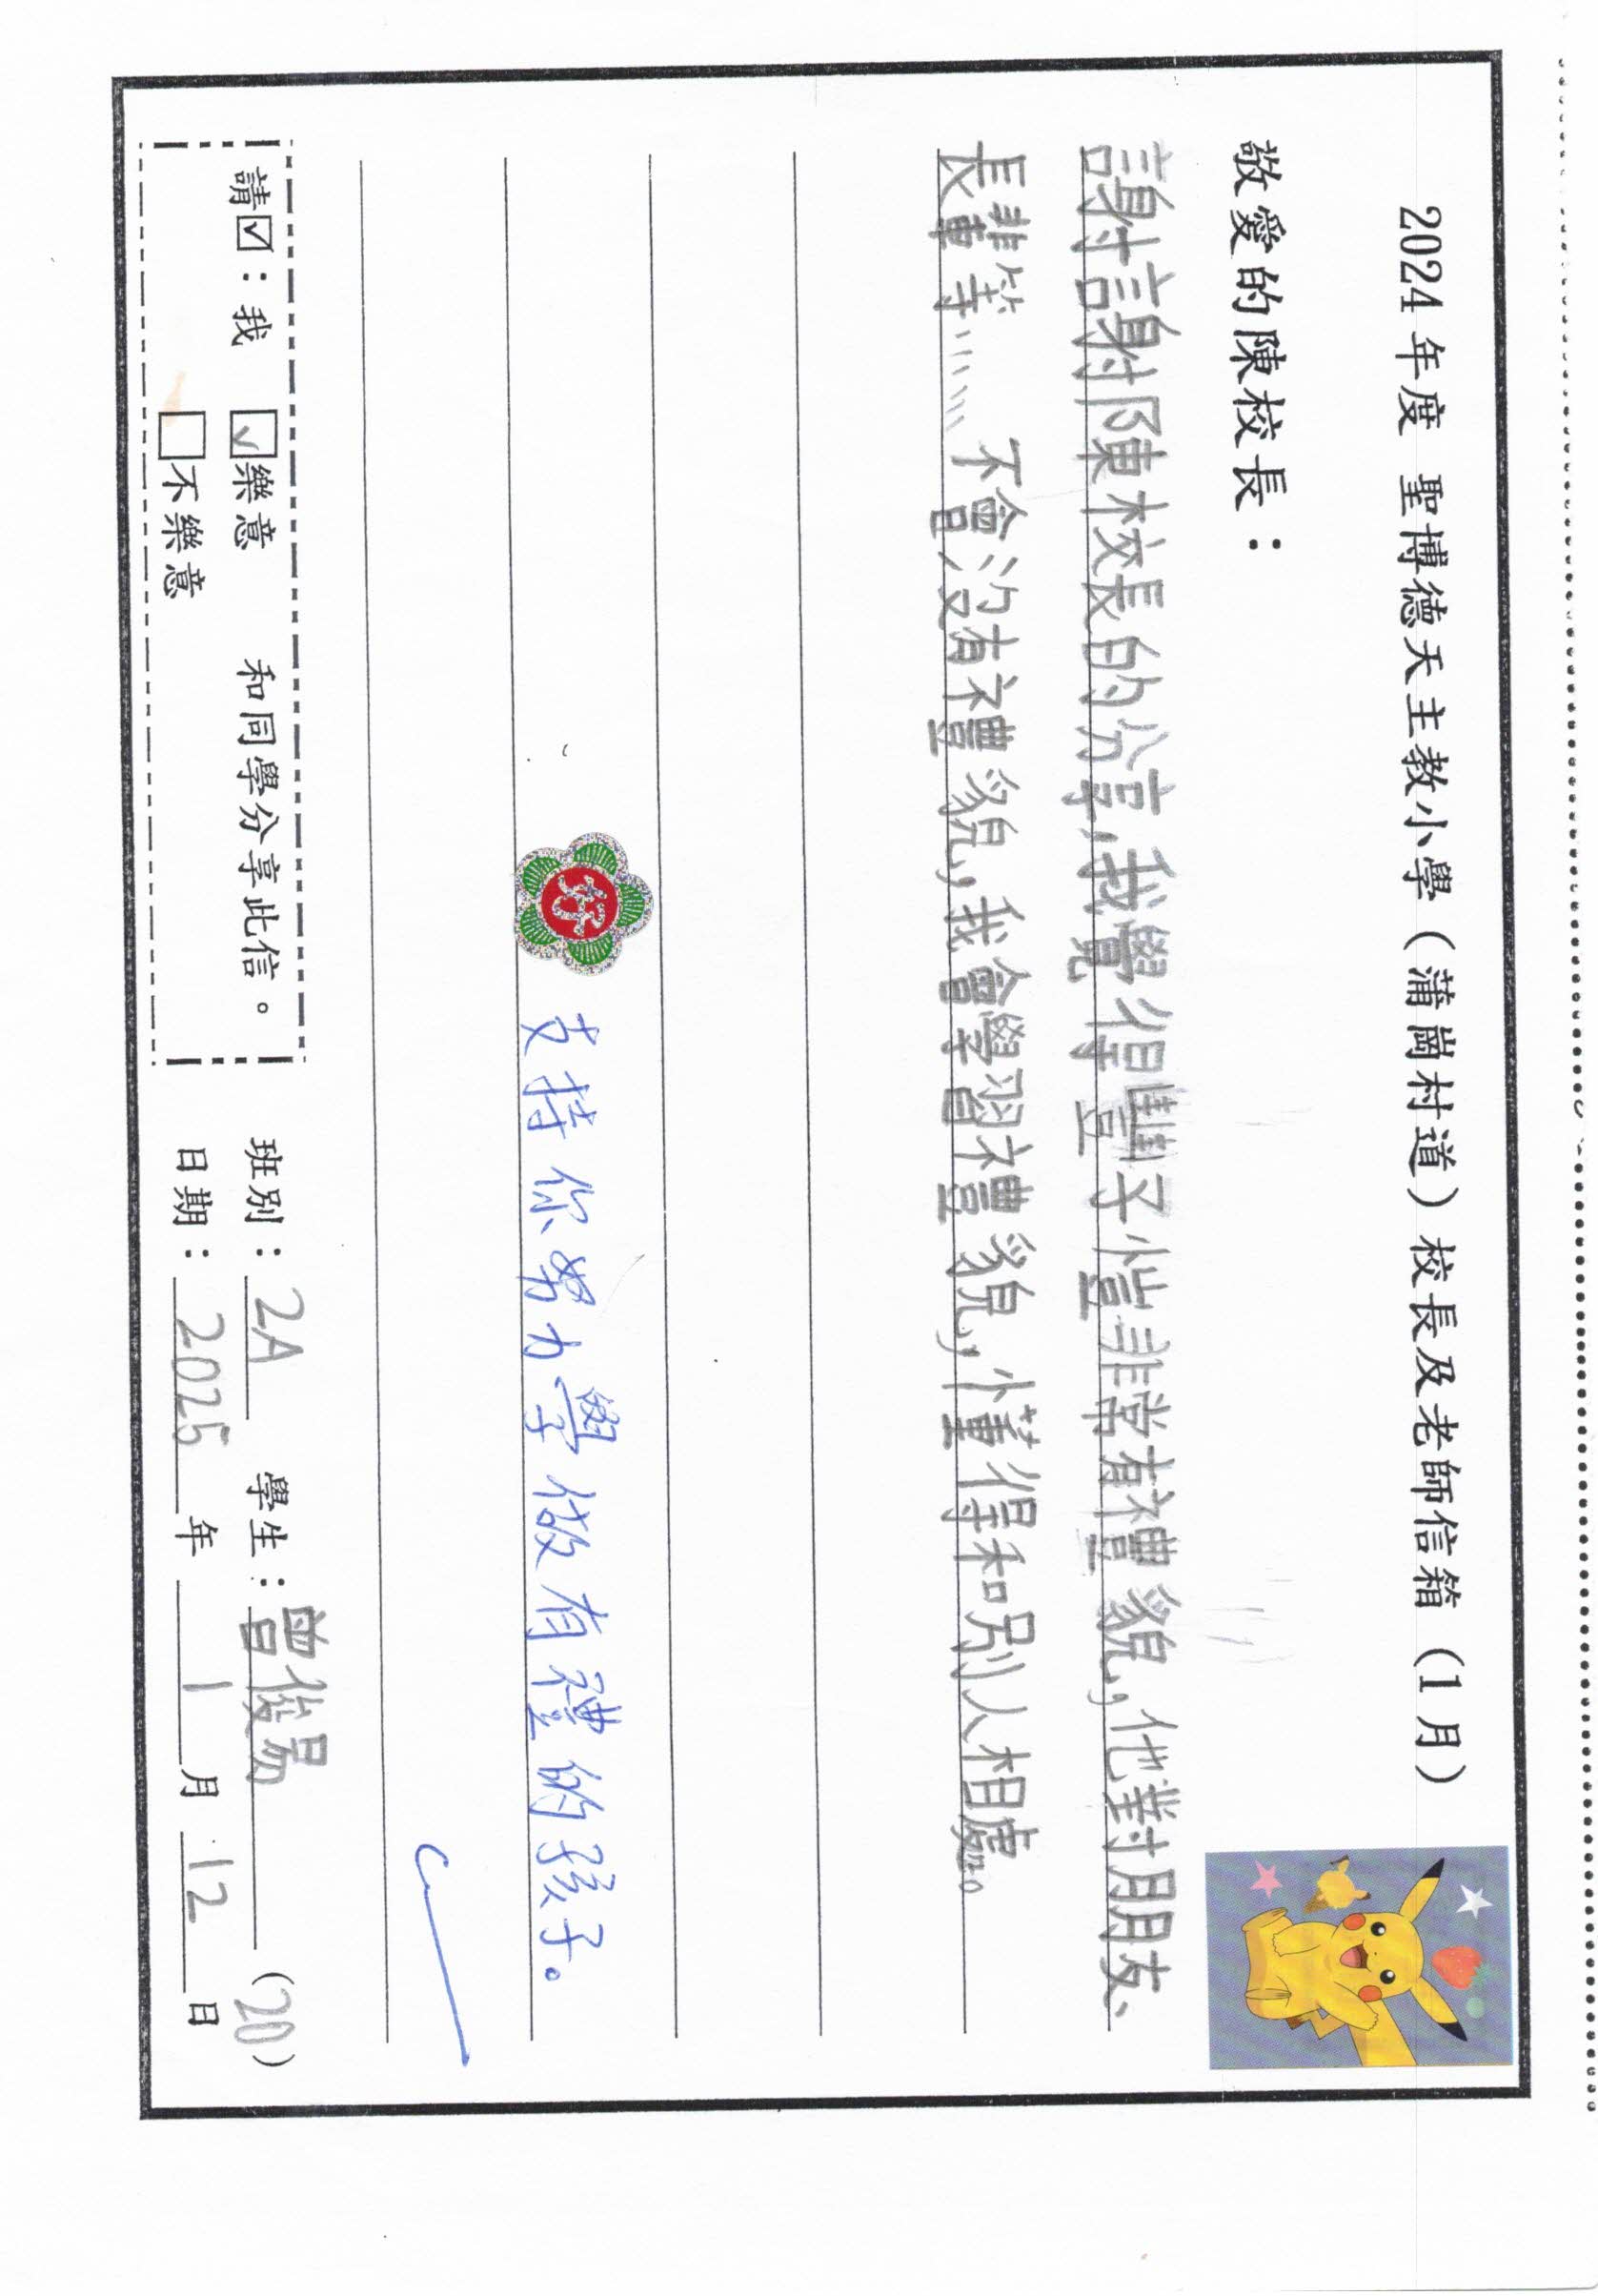 2024年度 聖博德天主教小學（蒲崗村道）校長及老師信箱（1月）
敬愛的陳校長：
謝謝陳校長的分享,我覺得豐子愷非常有禮貌,他對朋友、
長輩等……不會沒有禮貌,我會學習禮貌,懂得和別人相處。
支持你努力學做有禮的孩子。
請☑：我 ☑樂意 和同學分享此信。
□不樂意
班別：2A 學生：曾俊易（20）
日期：2025年1月12日